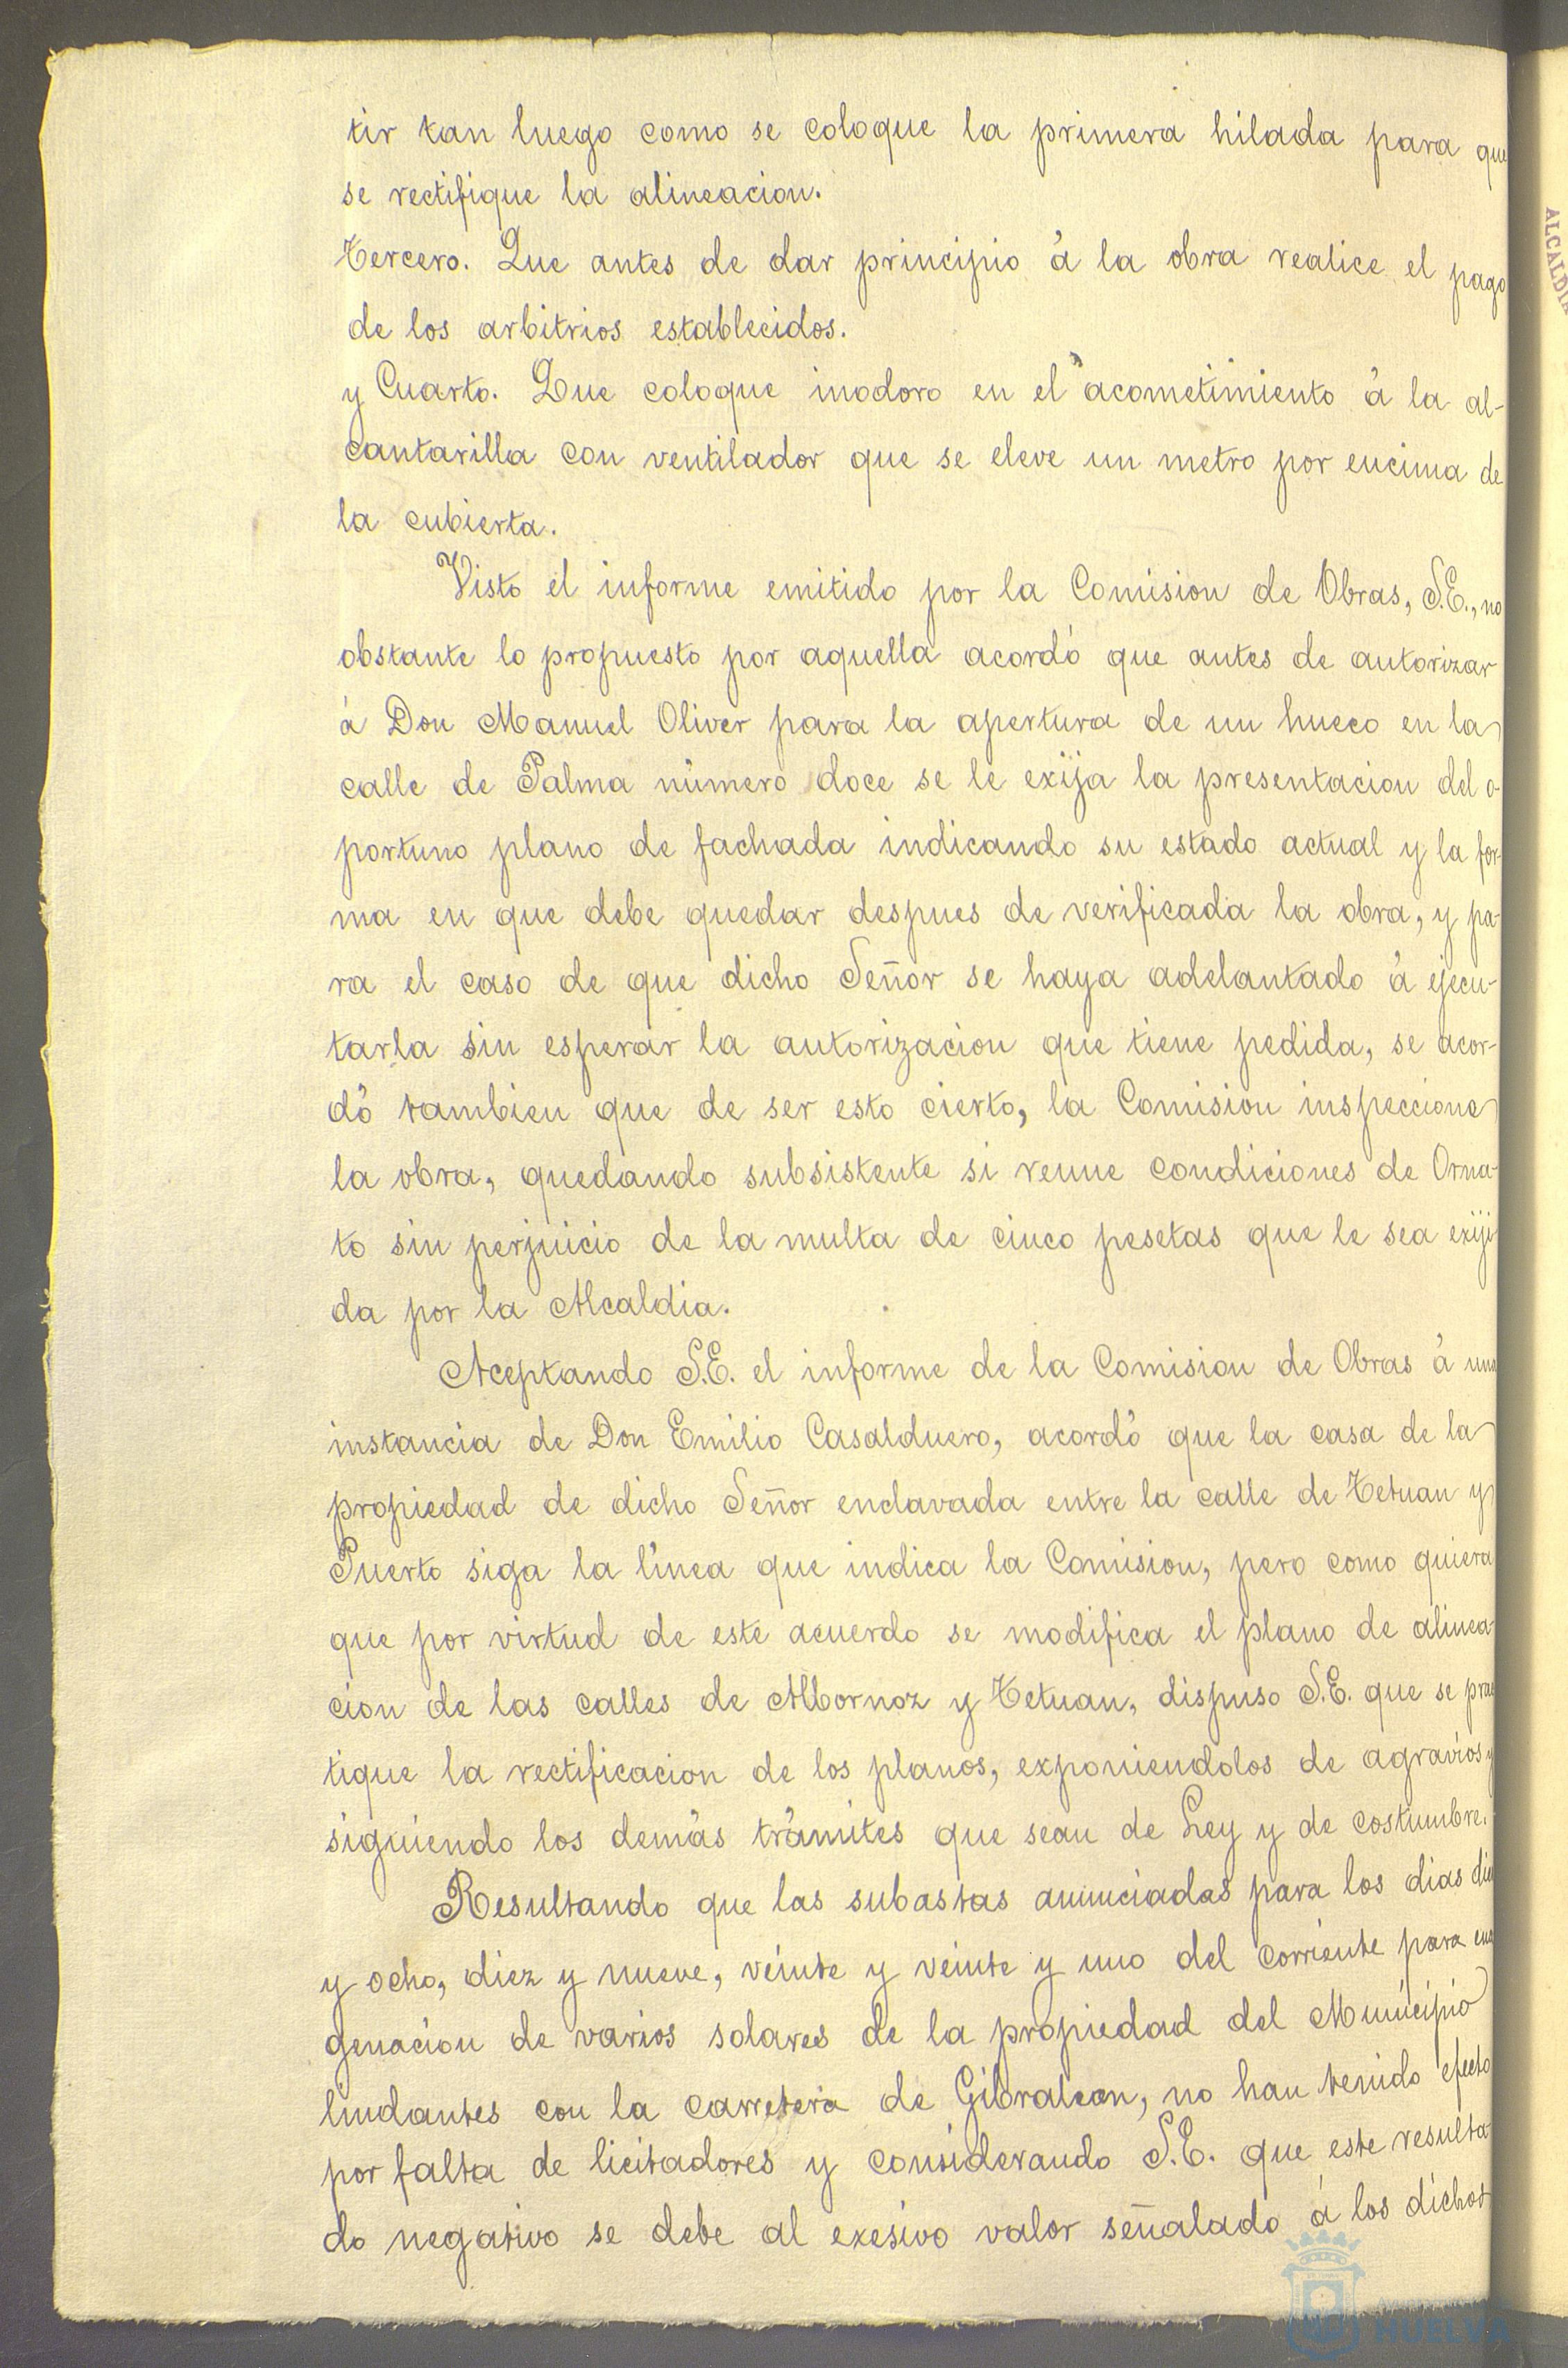 tir tan luego como se coloque la primera hilada para que
se rectifique la alineacion.
Tercero. Que antes de dar principio á la obra realice el pago
de los arbitrios establecidos.
y Cuarto. Que coloque inodoro en el acometimiento á la al-
cantarilla con ventilador que se eleve un metro por encima de
la cubierta.
Visto el informe emitido por la Comision de Obras, S.E., no
obstante lo propuesto por aquella acordó que antes de autorizar
á Don Manuel Oliver para la apertura de un hueco en la
calle de Palma número doce se le exija la presentacion del o-
portuno plano de fachada indicando su estado actual y la for-
ma en que debe quedar despues de verificada la obra, y pa-
ra el caso de que dicho Señor se haya adelantado á ejecu-
tarla sin esperar la autorizacion que tiene pedida, se acor-
dó tambien que de ser esto cierto, la Comision inspeccione
la obra, quedando subsistente si reune condiciones de Orna-
to sin perjuicio de la multa de cinco pesetas que le sea exiji-
da por la Alcaldia.
Aceptando S.E. el informe de la Comision de Obras á una
instancia de Don Emilio Casalduero, acordó que la casa de la
propiedad de dicho Señor enclavada entre la calle de Tetuan y
Puerto siga la línea que indica la Comision, pero como quiera
que por virtud de este acuerdo se modifica el plano de alinea-
cion de las calles de Albornoz y Tetuan, dispuso S.E. que se prac
tique la rectificacion de los planos, exponiendolos de agravios y
siguiendo los demás trámites que sean de Ley y de costumbre.
Resultando que las subastas anunciadas para los dias diez
y ocho, diez y nueve, veinte y veinte y uno del corriente para ena
genacion de varios solares de la propiedad del Municipio
lindantes con la carretera de Gibraleon, no han tenido efecto
por falta de licitadores y considerando S.E. que este resulta-
do negativo se debe al exesivo valor señalado á los dichos
ALCALDIA
HUELVA